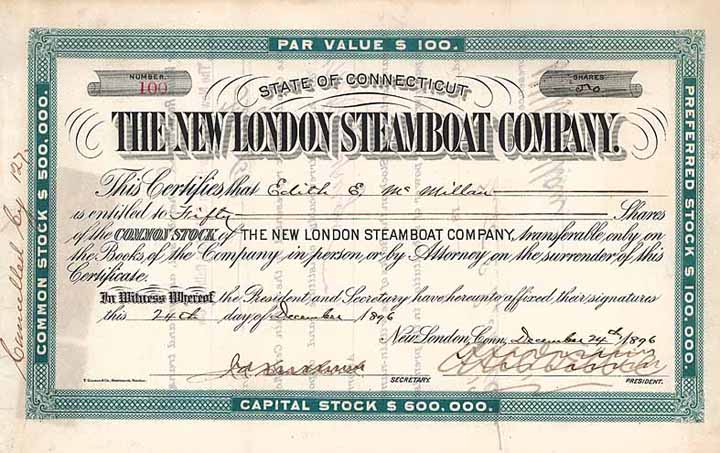 PAR VALUE $ 100.
NUMBER.
100
STATE OF CONNECTICUT
SHARES
50
THE NEW LONDON STEAMBOAT COMPANY.
This Certifies that Edith E. McMillan
is entitled to Fifty Shares
of the COMMON STOCK of THE NEW LONDON STEAMBOAT COMPANY, transferable only on
the Books of the Company in person or by Attorney on the surrender of this
Certificate.
In Witness Whereof the President and Secretary have hereunto affixed their signatures
this 24th day of December 1896
New London, Conn, December 24th 1896
SECRETARY.
PRESIDENT.
CAPITAL STOCK $ 600.000.
COMMON STOCK $ 500.000.
PREFERRED STOCK $ 100.000.
Cancelled by 127.